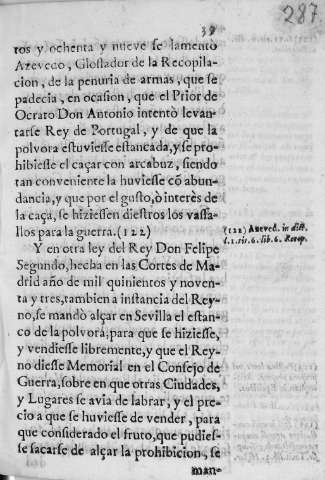 287
39
tos y ochenta y nueve se lamentò
Azevedo, Glossador de la Recopila-
cion, de la penuria de armas, que se
padecia, en ocasion, que el Prior de
Ocrato Don Antonio intentò levan-
tarse Rey de Portugal, y de que la
polvora estuviesse estancada, y se pro-
hibiesse el caçar con arcabuz, siendo
tan conveniente la huviesse cõ abun-
dancia, y que por el gusto, ò interès de
la caça, se hiziessen diestros los vassa-
llos para la guerra. (122)
(122) Azeved. in dict.
l. 1. tit. 6. lib. 6. Recop.
Y en otra ley del Rey Don Felipe
Segundo, hecha en las Cortes de Ma-
drid año de mil quinientos y noven-
ta y tres, tambien a instancia del Rey-
no, se mandò alçar en Sevilla el estan-
co de la polvora, para que se hiziesse,
y vendiesse libremente, y que el Rey-
no diesse Memorial en el Consejo de
Guerra, sobre en que otras Ciudades,
y Lugares se avia de labrar, y el pre-
cio a que se huviesse de vender, para
que considerado el fruto, que pudies-
se sacarse de alçar la prohibicion, se
man-